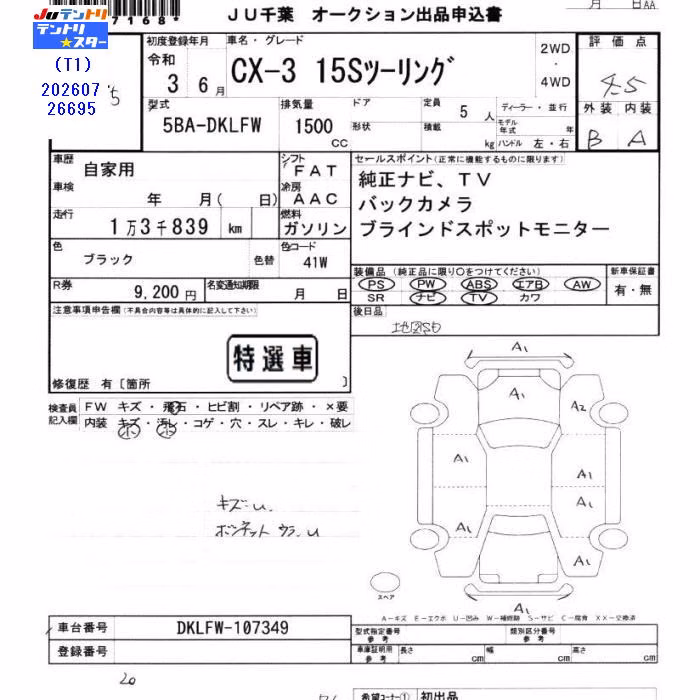 7168*
JU千葉 オークション出品申込書
月 日AA
JUテントリ
テントリ★スター
(T1)
202607
26695
5
初度登録年月
令和
3 6月
車名・グレード
CX-3 15Sツーリング
2WD
・
4WD
評価点
4.5
外装 内装
B A
型式
5BA-DKLFW
排気量
1500 CC
ドア
形状
定員
5人
積載
kg
ディーラー・並行
モデル年式 年
ハンドル 左・右
車歴
自家用
シフト
FAT
車検
年 月( 日)
冷房
AAC
走行
1万3千839 km
燃料
ガソリン
セールスポイント(正常に機能するものに限ります)
純正ナビ、TV
バックカメラ
ブラインドスポットモニター
色
ブラック
色替
色コード
41W
装備品 (純正品に限り○をつけてください)
PS PW ABS エアB AW
SR ナビ TV カワ
新車保証書
有・無
R券
9,200円
名変通知期限
月 日
後日品
注意事項申告欄(不具合内容等は具体的に記入して下さい)
特選車
修復歴 有〔箇所 〕
検査員
記入欄
FW キズ・飛石・ヒビ割・リペア跡・×要
内装 キズ・汚レ・コゲ・穴・スレ・キレ・破レ
キズU
ボンネットウラU
A1
A1
A2
A1
A1
A1
A1
A1
A1
A1
スペア
A-キズ E-エクボ U-凹み W-補修跡 S-サビ C-腐食 XX-交換済
車台番号
DKLFW-107349
登録番号
型式指定番号
参考
類別区分番号
参考
車庫証明用
参考
長さ cm
幅 cm
高さ cm
20
希望コーナー①
初出品